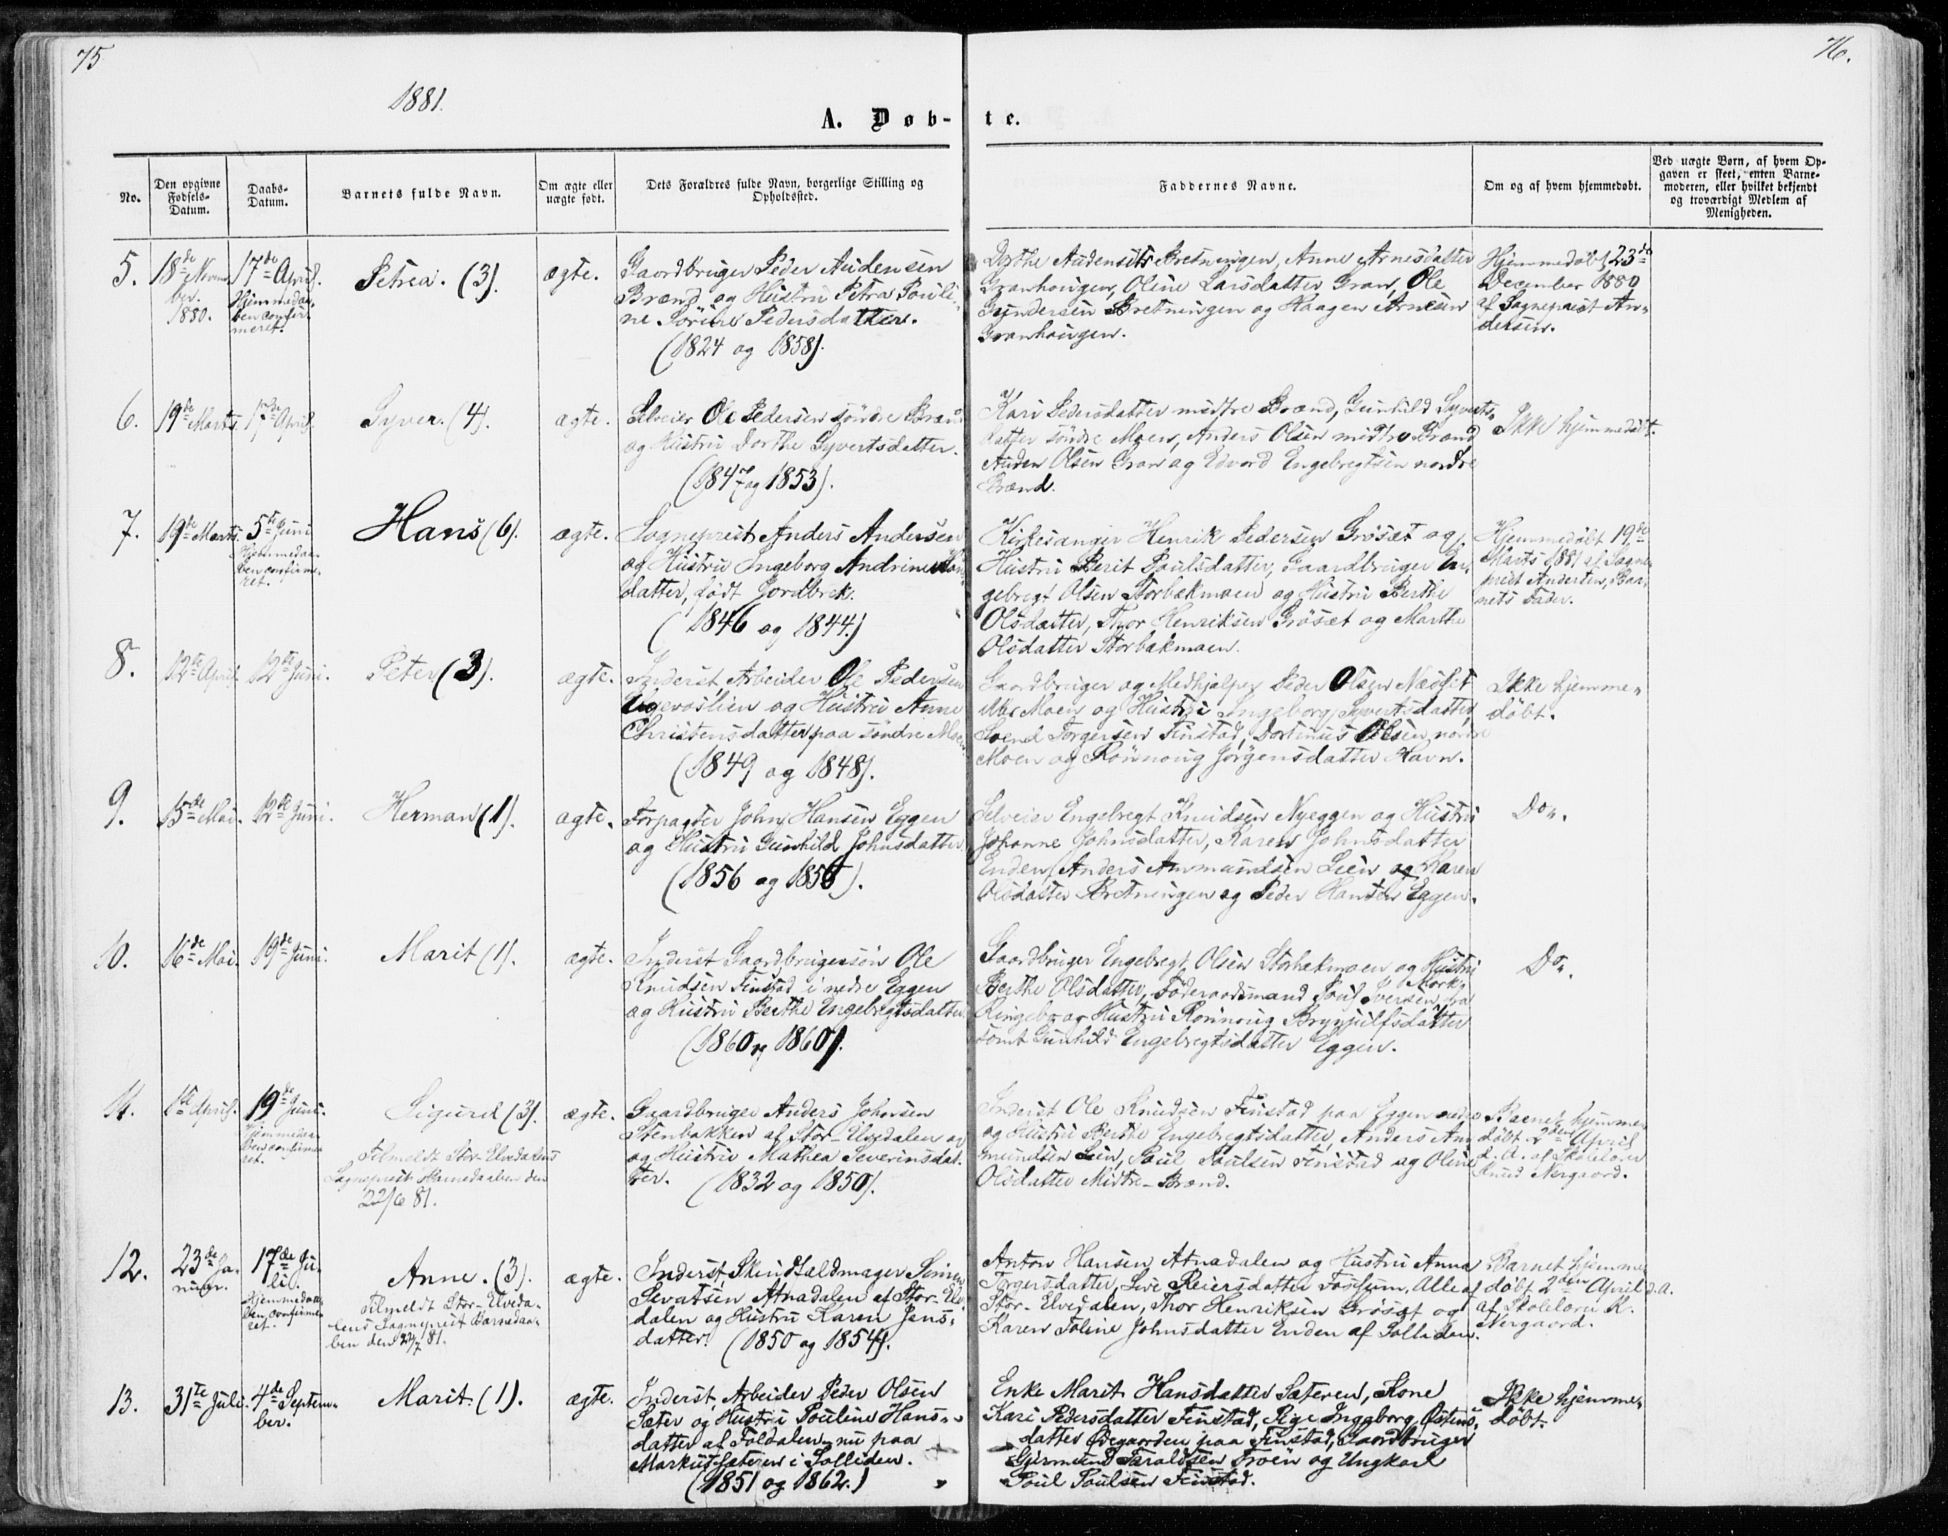 75
76.
1881.
A. Døb-te.
No.
Den opgivne Fødsels-Datum.
Daabs-Datum.
Barnets fulde Navn.
Om ægte eller uægte født.
Dets Forældres fulde Navn, borgerlige Stilling og Opholdssted.
Faddernes Navne.
Om og af hvem hjemmedøbt.
Ved uægte Børn, af hvem Opgaven er skeet, enten Barnemoderen, eller hvilket bekjendt og troværdigt Medlem af Menigheden.
5.
18de Novem
ber.
1880.
17de April.
Hjemmedaa
ben confir
meret.
Petrea. (3).
ægte.
Gaardbruger Peder Audensen
Brænd og Hustru Petra Pouli
ne Sørine Pedersdatter.
(1824 og 1858).
Dorthe Audensdtr Bretningen, Anne Arnesdatter
Granhougen, Oline Larsdatter Gran, Ole
Gundersen Bretningen og Haagen Arnesen
Granhougen.
Hjemmedøbt 23de
December 1880
af Sognepræst An-
dersen.
6.
19de Marts.
17de April.
Syver. (4).
ægte.
Selveier Ole Pedersen søndre Brænd
og Hustru Dorthe Syvertsdatter.
(1847 og 1853).
Kari Pedersdatter midtre Brænd, Gunhild Syverts-
datter søndre Moen, Anders Olsen midtre Brænd
Auden Olsen Gran og Edvard Engebregtsen nordre
Brænd.
Ikke hjemmedøbt.
7.
19de Marts.
5te Juni.
Hjemmedaa-
ben confirme-
ret.
Hans (6).
ægte.
Sognepræst Anders Andersen
og Hustru Ingeborg Andrine
datter, født Jordbrek.
(1846 og 1844.)
Kirkesanger Henrik Pedersen Grøsæt og
Hustru Berit Poulsdatter, Gaardbruger En-
gebregt Olsen Storbækmoen og Hustru Berthe
Olsdatter, Thor Henriksen Grøsæt og Marthe
Olsdatter Storbækmoen.
Hjemmedøbt 19de
Marts 1881 af Sogne-
præst Andersen, Bar-
nets Fader.
8.
12te April.
12te Juni.
Peter (3).
ægte.
Inderst Arbeider Ole Pedersen
og Hustru Anne
Christensdatter paa søndre Moen
(1849 og 1848).
Gaardbruger og Medhjælper Peder Olsen Næsset
Moen og Hustru Ingeborg Syvertsdatter,
Svend Torgersen Finstad, Olsen nordre
Moen og Rønnoug Jørgensdatter Havn.
Ikke hjemme-
døbt.
9.
15de Mai.
12te Juni.
Herman (1).
ægte.
Forpagter John Hansen Eggen
og Hustru Gunhild Johnsdatter
(1856 og 1856).
Selveier Engebregt Knudsen Nyeggen og Hustru
Johanne Johnsdatter, Karen Johnsdatter
Enden, Anders Ammundsen Lien og Karen
Olsdatter Bretningen og Peder Hansen Eggen.
Do.
10.
16de Mai.
19de Juni.
Marit (1).
ægte.
Inderst Gaardbrugersøn Ole
Knudsen Finstad i nedre Eggen
og Hustru Berthe Engebregtsdatter
(1860 og 1860).
Gaardbruger Engebregt Olsen Storbækmoen og Hustru
Berthe Olsdatter, Føderaadsmand Poul Iversen Mork fra
Ringebo og Hustru Rønnoug Brynjulfsdatter
samt Gunhild Engebregtsdatter Eggen.
Do.
11.
1ste April.
19de Juni.
Hjemmedaa
ben confirme
ret.
Sigurd (3).
Tilmeldt Stor-Elvedalens
Sognepræst Barnedaaben den
22/6 81.
ægte.
Gaardbruger Anders Johnsen
Stenbakken af Stor-Elvedalen og
og Hustru Mathea Severinsdat-
ter. (1832 og 1850).
Inderst Ole Knudsen Finstad paa Eggen nedre
og Hustru Berthe Engebregtsdatter, Anders Am
mundsen Lien, Poul Poulsen Finstad og Oline
Olsdatter Midtre-Brænd.
Barnet hjemme
døbt 2den April
d. A. af Skolelærer
Knud Nergaard.
12.
23de Ja-
nuar.
17de Ju-
li.
Hjemmedaa
ben confirme
ret.
Anne. (3).
Tilmeldt Stor-Elveda-
lens Sognepræst Barnedaa-
ben den 22/7 81.
ægte.
Inderst Skindfældmager Simen
Sevatsen Atnadalen af Stor-Elv
dalen og Hustru Karen Jens-
datter. (1850 og 1854).
Anton Hansen Atnadalen og Hustru Anne
Torgersdatter, Live Reiersdatter Fossum, Alle af
Stor-Elvedalen, Thor Henriksen Grøsæt og
Karen Toline Johnsdatter Enden af Solliden.
Barnet hjemme
døbt 2den April d.A.
af Skolelærer K.
Nergaard.
13.
31te Juli.
4de Septem-
ber.
Marit. (1).
ægte.
Inderst, Arbeider Peder Olsen
Sæter og Hustru Pouline Hans-
datter af Foldalen nu paa
Markussæteren i Solliden.
(1851 og 1862.)
Enke Marit Hansdatter Sæteren, Kone
Kari Pedersdatter Finstad, Pige Ingeborg Østens-
datter Ødegaarden paa Finstad, Gaardbruger
Gjermund Taraldsen Troen og Ungkarl
Poul Poulsen Finstad.
Ikke hjemme-
døbt.